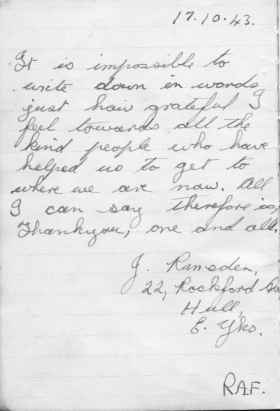 17.10.43.
It is impossible to
write down in words
just how grateful I
feel towards all the
kind people who have
helped us to get to
where we are now. All
I can say therefore is,
Thankyou, one and all.
J. Ramsden,
22, Rockford
Hull,
E. Yks.
R.A.F.